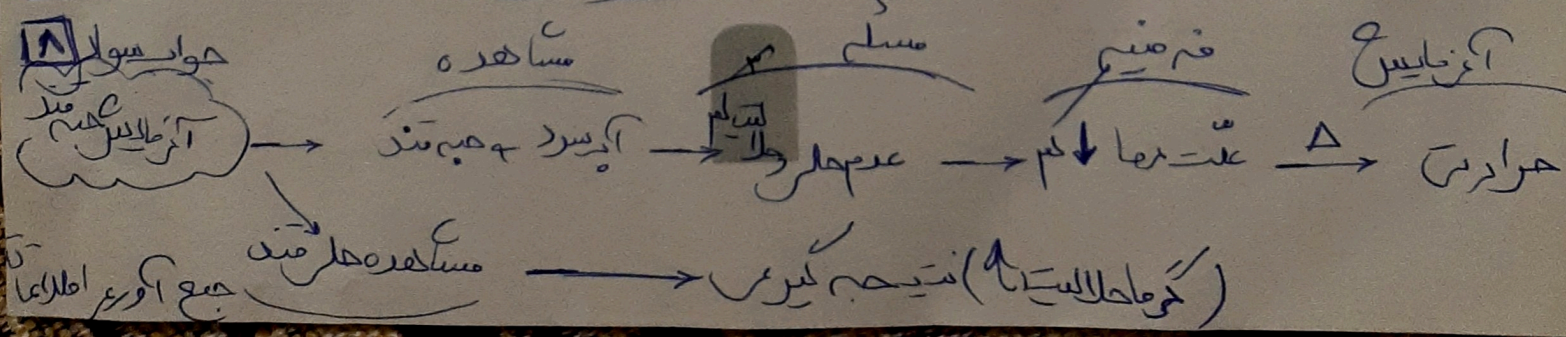 جواب سوال ۸ مشاهده مسئله ۳ فرضیه آزمایش
آزمایش حبه قند → آب سرد + حبه قند → عدم حل حلالیت کم → علّت دما ↓ کم Δ → حرارت
جمع آوری اطلاعات مشاهده حل قند → نتیجه گیری (گرما حلالیت ↑)